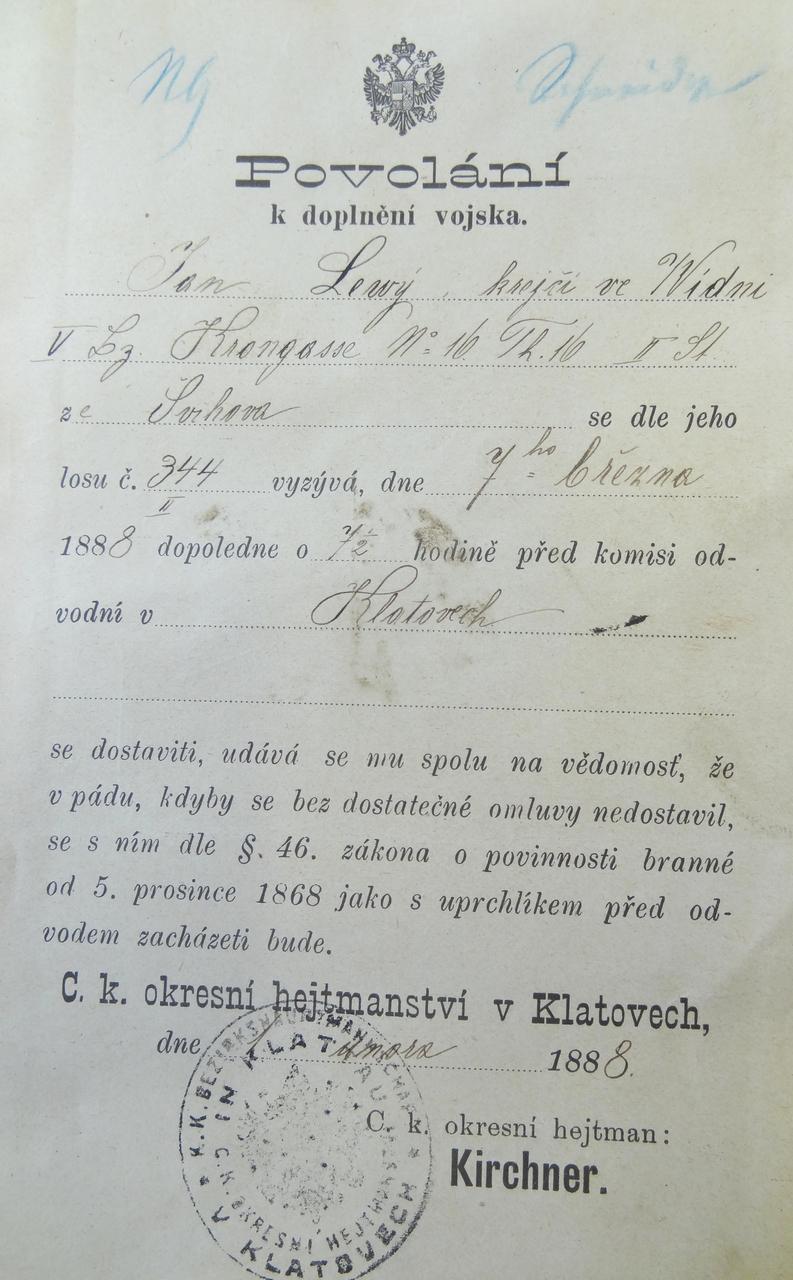 NG Schneider
Povolání
k doplnění vojska.
Jan Lewý, krejčí ve Wídni
V Bz. Krongasse No 16 Th. 16 II St.
ze Švihova se dle jeho
losu č. 344 vyzývá, dne 7ho března
II
1888 dopoledne o 7½ hodině před komisi od-
vodní v Klatovech
se dostaviti, udává se mu spolu na vědomosť, že
v pádu, kdyby se bez dostatečné omluvy nedostavil,
se s ním dle §. 46. zákona o povinnosti branné
od 5. prosince 1868 jako s uprchlíkem před od-
vodem zacházeti bude.
C. k. okresní hejtmanství v Klatovech,
dne února 1888.
C. k. okresní hejtman:
Kirchner.
K.K. BEZIRKSHAUPTMANNSCHAFT
IN KLATTAU
C.K. OKRESNÍ HEJTMANSTVÍ
V KLATOVECH